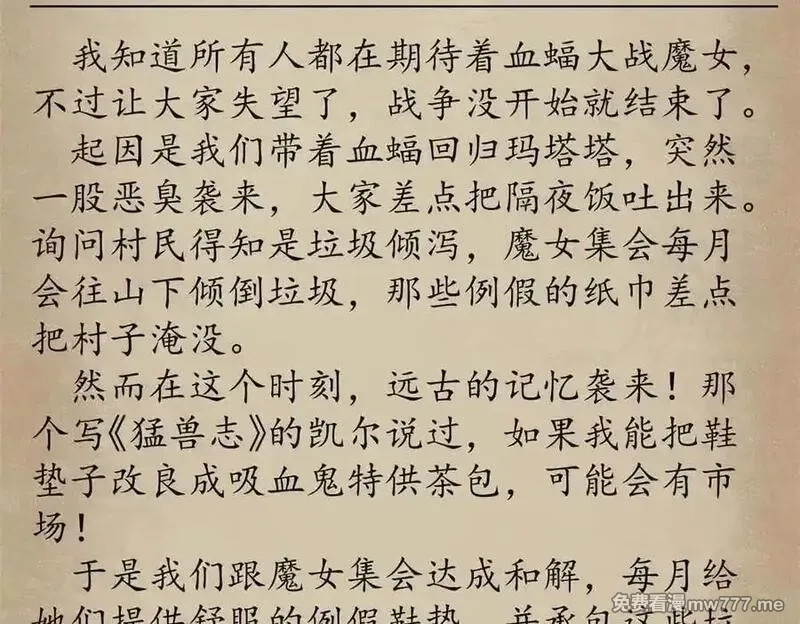 我知道所有人都在期待着血蝠大战魔女，
不过让大家失望了，战争没开始就结束了。
起因是我们带着血蝠回归玛塔塔，突然
一股恶臭袭来，大家差点把隔夜饭吐出来。
询问村民得知是垃圾倾泻，魔女集会每月
会往山下倾倒垃圾，那些例假的纸巾差点
把村子淹没。
然而在这个时刻，远古的记忆袭来！那
个写《猛兽志》的凯尔说过，如果我能把鞋
垫子改良成吸血鬼特供茶包，可能会有市
场！
于是我们跟魔女集会达成和解，每月给
她们提供舒服的例假鞋垫，并承包这些垃
免费看漫mw777.me